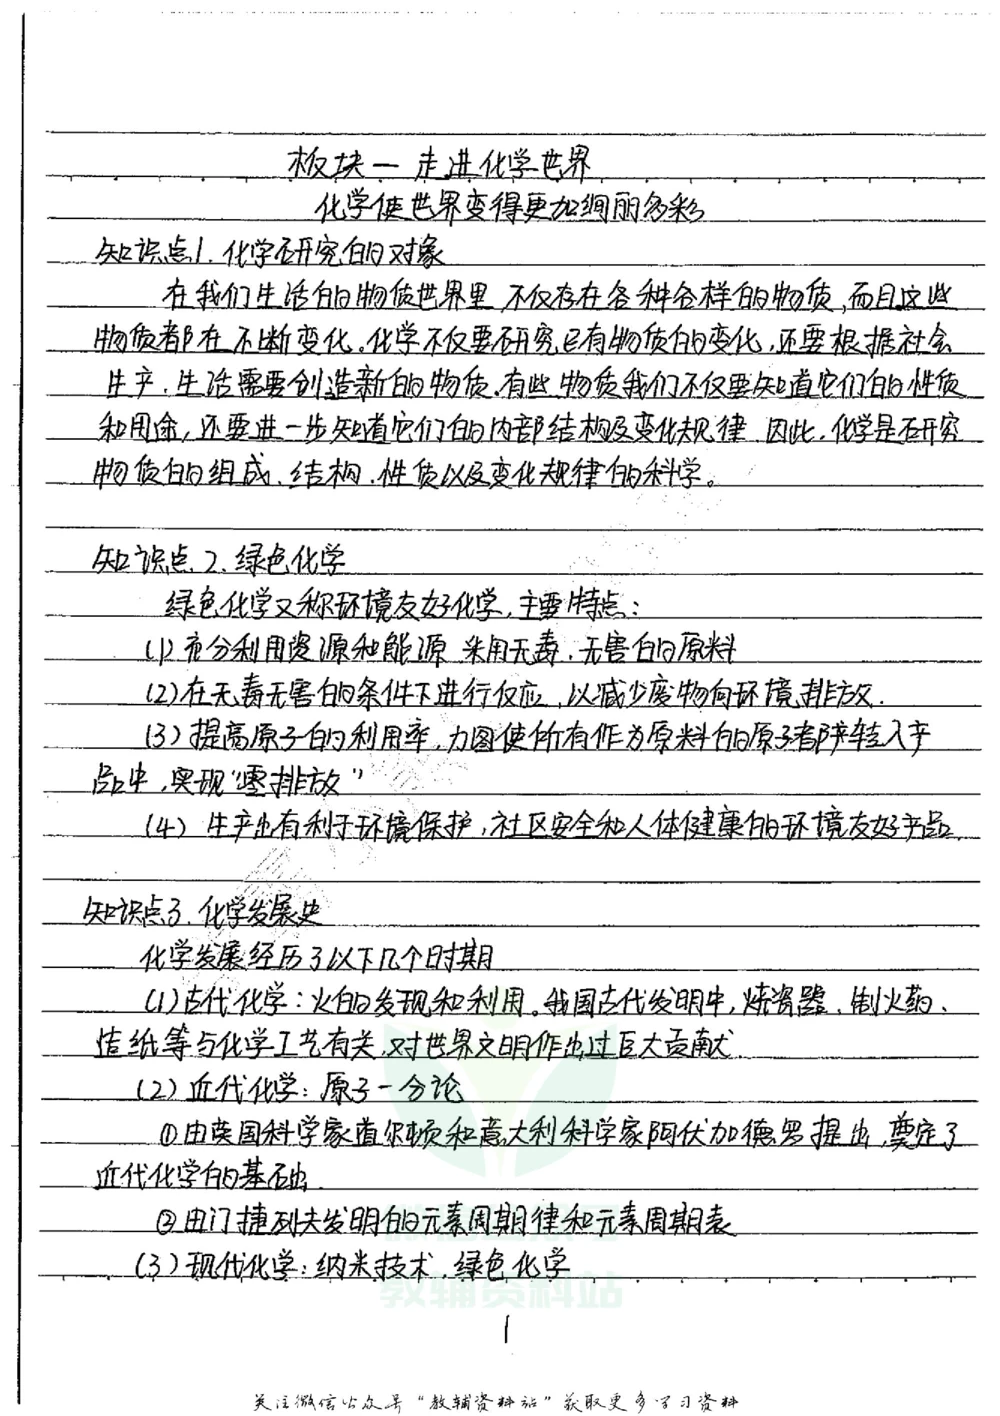 板块一 走进化学世界
化学使世界变得更加绚丽多彩
知识点1.化学研究的对象
在我们生活的物质世界里,不仅存在各种各样的物质,而且这些
物质都在不断变化。化学不仅要研究已有物质的变化,还要根据社会
生产、生活需要创造新的物质.有些物质我们不仅要知道它们的性质
和用途,还要进一步知道它们的内部结构及变化规律.因此,化学是研究
物质的组成、结构、性质以及变化规律的科学。
知识点2.绿色化学
绿色化学又称环境友好化学,主要特点:
(1)充分利用资源和能源 采用无毒、无害的原料
(2)在无毒无害的条件下进行反应,以减少废物向环境排放.
(3)提高原子的利用率,力图使所有作为原料的原子都转入产
品中,实现“零排放”
(4)生产出有利于环境保护,社区安全和人体健康的环境友好产品.
知识点3.化学发展史
化学发展经历了以下几个时期
(1)古代化学:火的发现和利用。我国古代发明中,烧瓷器、制火药、
造纸等与化学工艺有关,对世界文明作出过巨大贡献.
(2)近代化学:原子-分论
①由英国科学家道尔顿和意大利科学家阿伏加德罗提出,奠定了
近代化学的基础.
②由门捷列夫发明的元素周期律和元素周期表
(3)现代化学:纳米技术、绿色化学
教辅资料站
1
关注微信公众号“教辅资料站”获取更多学习资料